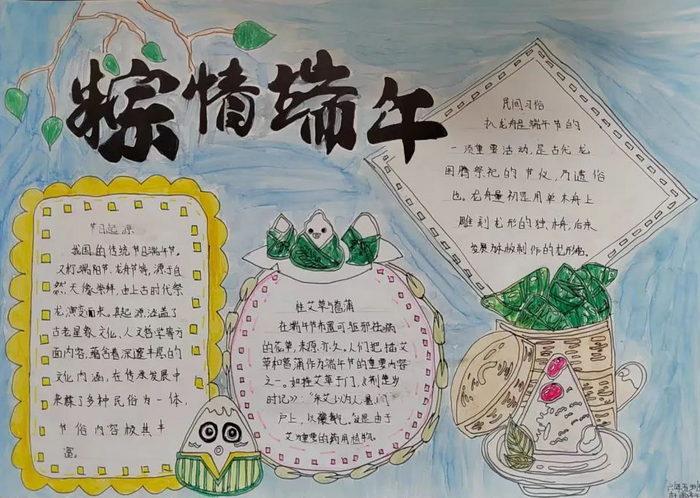 粽情端午
节日起源
我国的传统节日端午节。
又称端阳节、龙舟节等,源于自
然天象崇拜,由上古时代祭
龙演变而来。其起源涵盖了
古老星象文化、人文哲学等方
面内容,蕴含着深邃丰厚的
文化内涵,在传承发展中
杂糅了多种民俗为一体,
节俗内容极其丰
富。
挂艾草与菖蒲
在端午节布置可驱邪祛病
的花草,来源亦久。人们把插艾
草和菖蒲作为端午节的重要内容
之一。如挂艾草于门,《荆楚岁
时记》:"采艾以为人,悬门
户上,以禳毒气。"这是由于
艾为重要的药用植物。
民间习俗
扒龙舟是端午节的
一项重要活动,是古代龙
图腾祭祀的节仪,乃遗俗
也。龙舟最初是用单木舟上
雕刻龙形的独木舟,后来
发展为木板制作的龙形船。